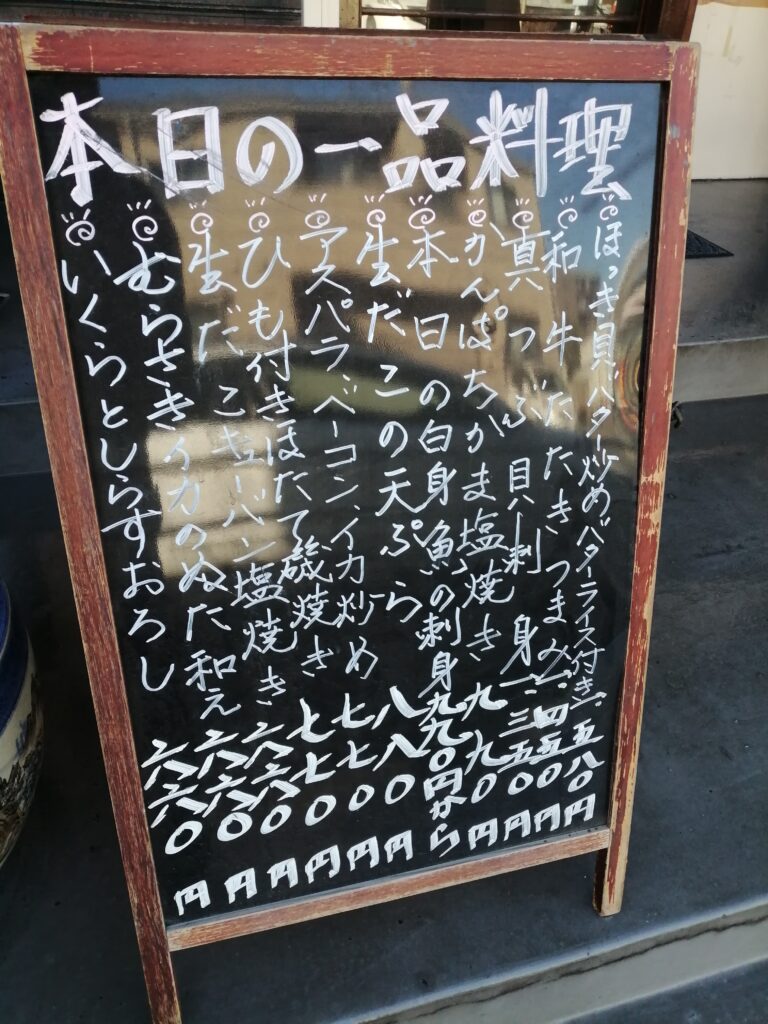 本日の一品料理
ほっき貝バター炒めバターライス付き 一、五八〇円
和牛たたきつまみ 一、四五〇円
真つぶ貝刺身 一、三五〇円
かんぱちかま塩焼き 九九〇円
本日の白身魚の刺身 九九〇円から
生だこの天ぷら 八八〇円
アスパラ、ベーコン、イカ炒め 七七〇円
ひも付きほたて磯焼き 七七〇円
生だこキューバン塩焼き 六六〇円
むらさきイカのぬた和え 六六〇円
いくらとしらすおろし 六六〇円